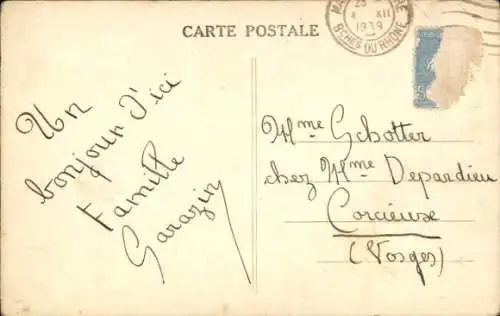 CARTE POSTALE
XII
1939
BCHES DU RHÔNE
Un
bonjour d'ici
Famille
Garazin
Mme Schotter
chez Mme Depardieu
Corcieuse
(Vosges)